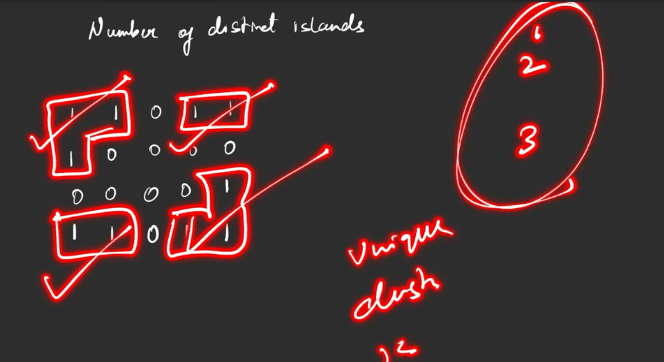 Number of distinct islands
1 1 0 1 1
1 0 0 0 0
0 0 0 0 1
1 1 0 1 1
1
2
3
unique